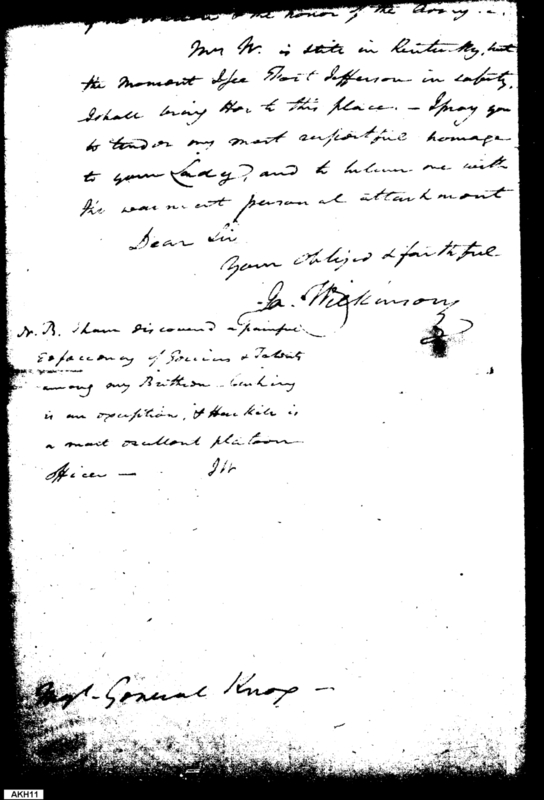 the honor of the Army —
Mrs W. is still in Kentucky, but
the moment I see Fort Jefferson in safety,
I shall bring Her to this place. — I pray you
to tender my most respectful homage
to your Lady, and to believe me with
the warmest personal attachment
Dear Sir
Your obliged & faithful
Ja. Wilkinson
N. B. I have discoverd a painful
of Genius & Talents
among my Brethren
is an exception, & Haskell is
a most excellent platoon
officer — JW
Majr. General Knox —
AKH11